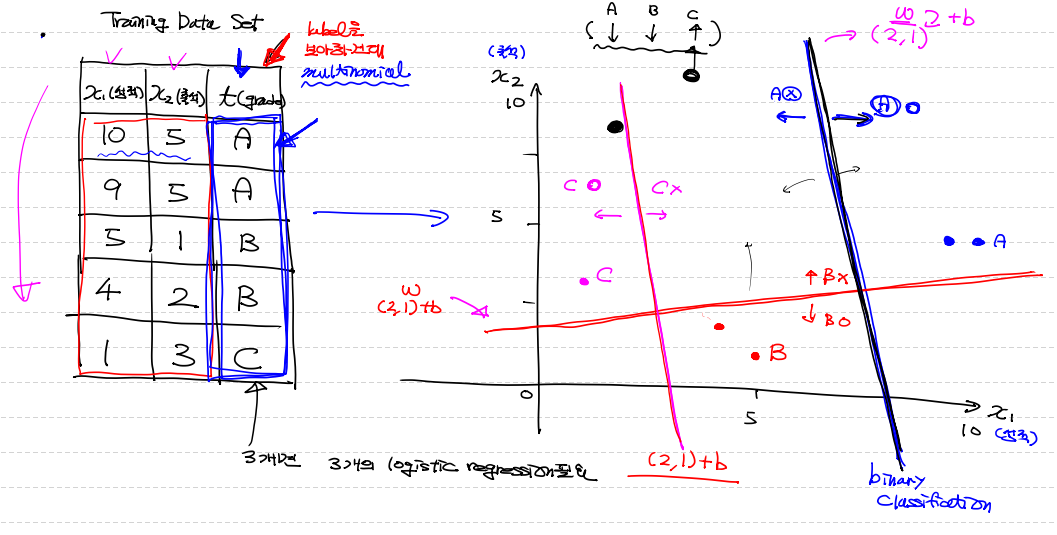 Training Data Set
label을
보아하건대
multinomial
x₁(성적) x₂(출석) t(grade)
10 5 A
9 5 A
5 1 B
4 2 B
1 3 C
3개면 3개의 logistic regression필요
A B C
( ↓ ↓ ↑ )
(출석)
x₂
10
5
0
5
10
x₁
(성적)
C
Cx
C
W
(2,1)+b
(2,1)+b
B
↑ Bx
↓ BO
W 2+b
(2,1)
A(x)
A
A
binary
classification